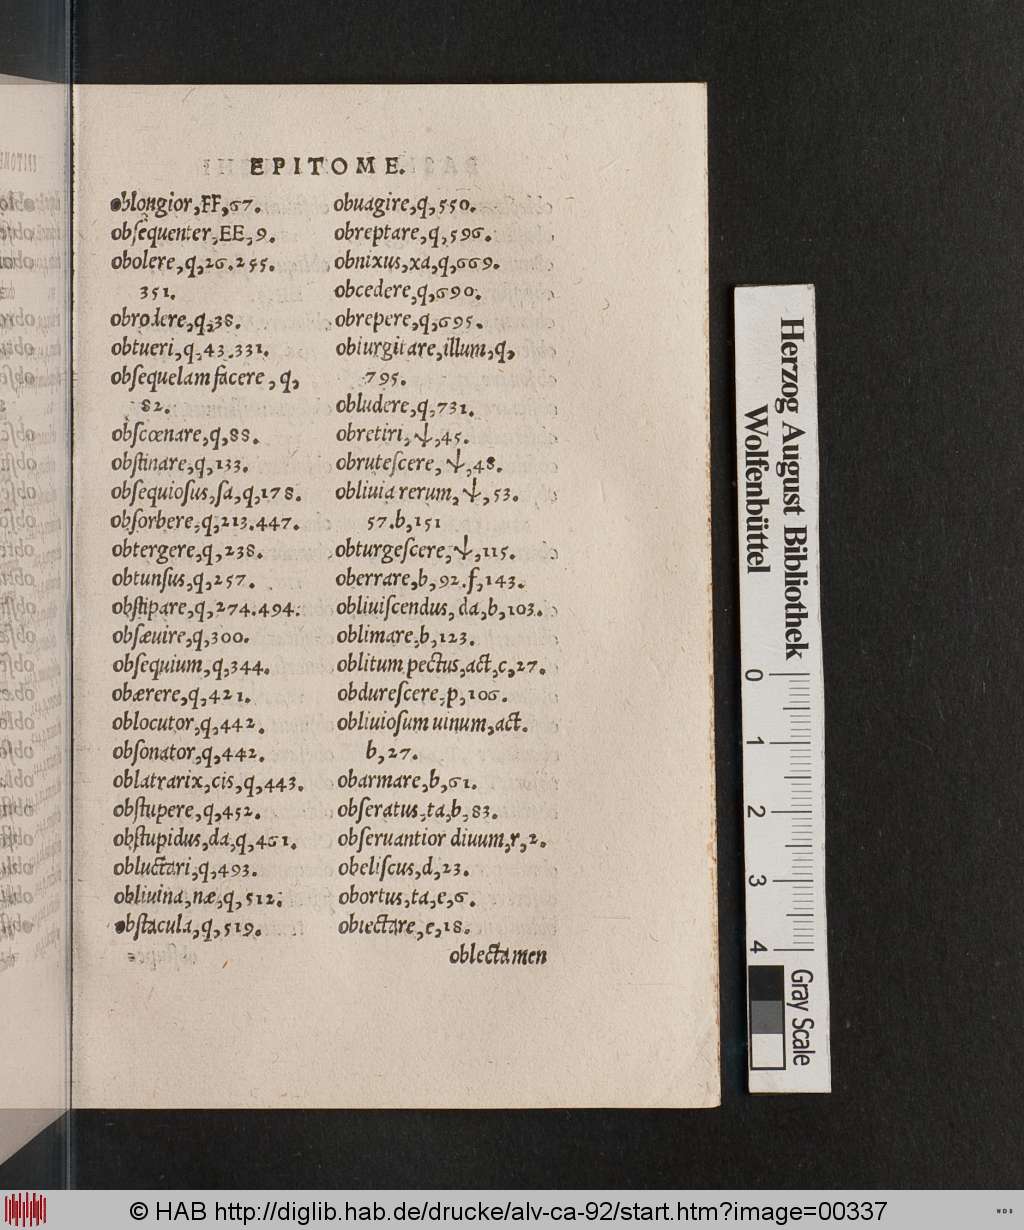 EPITOME.
oblongior,FF,67.
obsequenter,EE,9.
obolere,q,26.255.
351.
obrodere,q,38.
obtueri,q,43.331.
obsequelam facere, q,
82.
obscœnare,q,88.
obstinare,q,133.
obsequiosus,sa,q,178.
obsorbere,q,213.447.
obtergere,q,238.
obtunsus,q,257.
obstipare,q,274.494.
obsæuire,q,300.
obsequium,q,344.
obærere,q,421.
oblocutor,q,442.
obsonator,q,442.
oblatrarix,cis,q,443.
obstupere,q,452.
obstupidus,da,q,461.
obluctari,q,493.
obliuina,næ,q,512.
obstacula,q,519.
obuagire,q,550.
obreptare,q,596.
obnixus,xa,q,669.
obcedere,q,690.
obrepere,q,695.
obiurgitare,illum,q,
795.
obludere,q,731.
obretiri,ψ,45.
obrutescere,ψ,48.
obliuia rerum,ψ,53.
57.b,151
obturgescere,ψ,115.
oberrare,b,92.f,143.
obliuiscendus,da,b,103.
oblimare,b,123.
oblitum pectus,act,c,27.
obdurescere,p,106.
obliuiosum uinum,act.
b,27.
obarmare,b,61.
obseratus,ta,b,83.
obseruantior diuum,r,2.
obeliscus,d,23.
obortus,ta,e,6.
obiectare,e,18.
oblectamen
Herzog August Bibliothek
Wolfenbüttel
0
1
2
3
4
Gray Scale
© HAB http://diglib.hab.de/drucke/alv-ca-92/start.htm?image=00337